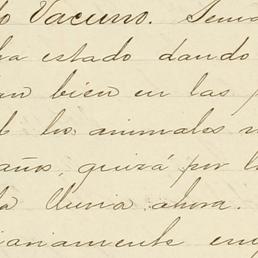 o Vacuno. Sema
ha estado dando
an bien en las
los animales
años, quizá por l
la lluvia ahora.
iariamente en